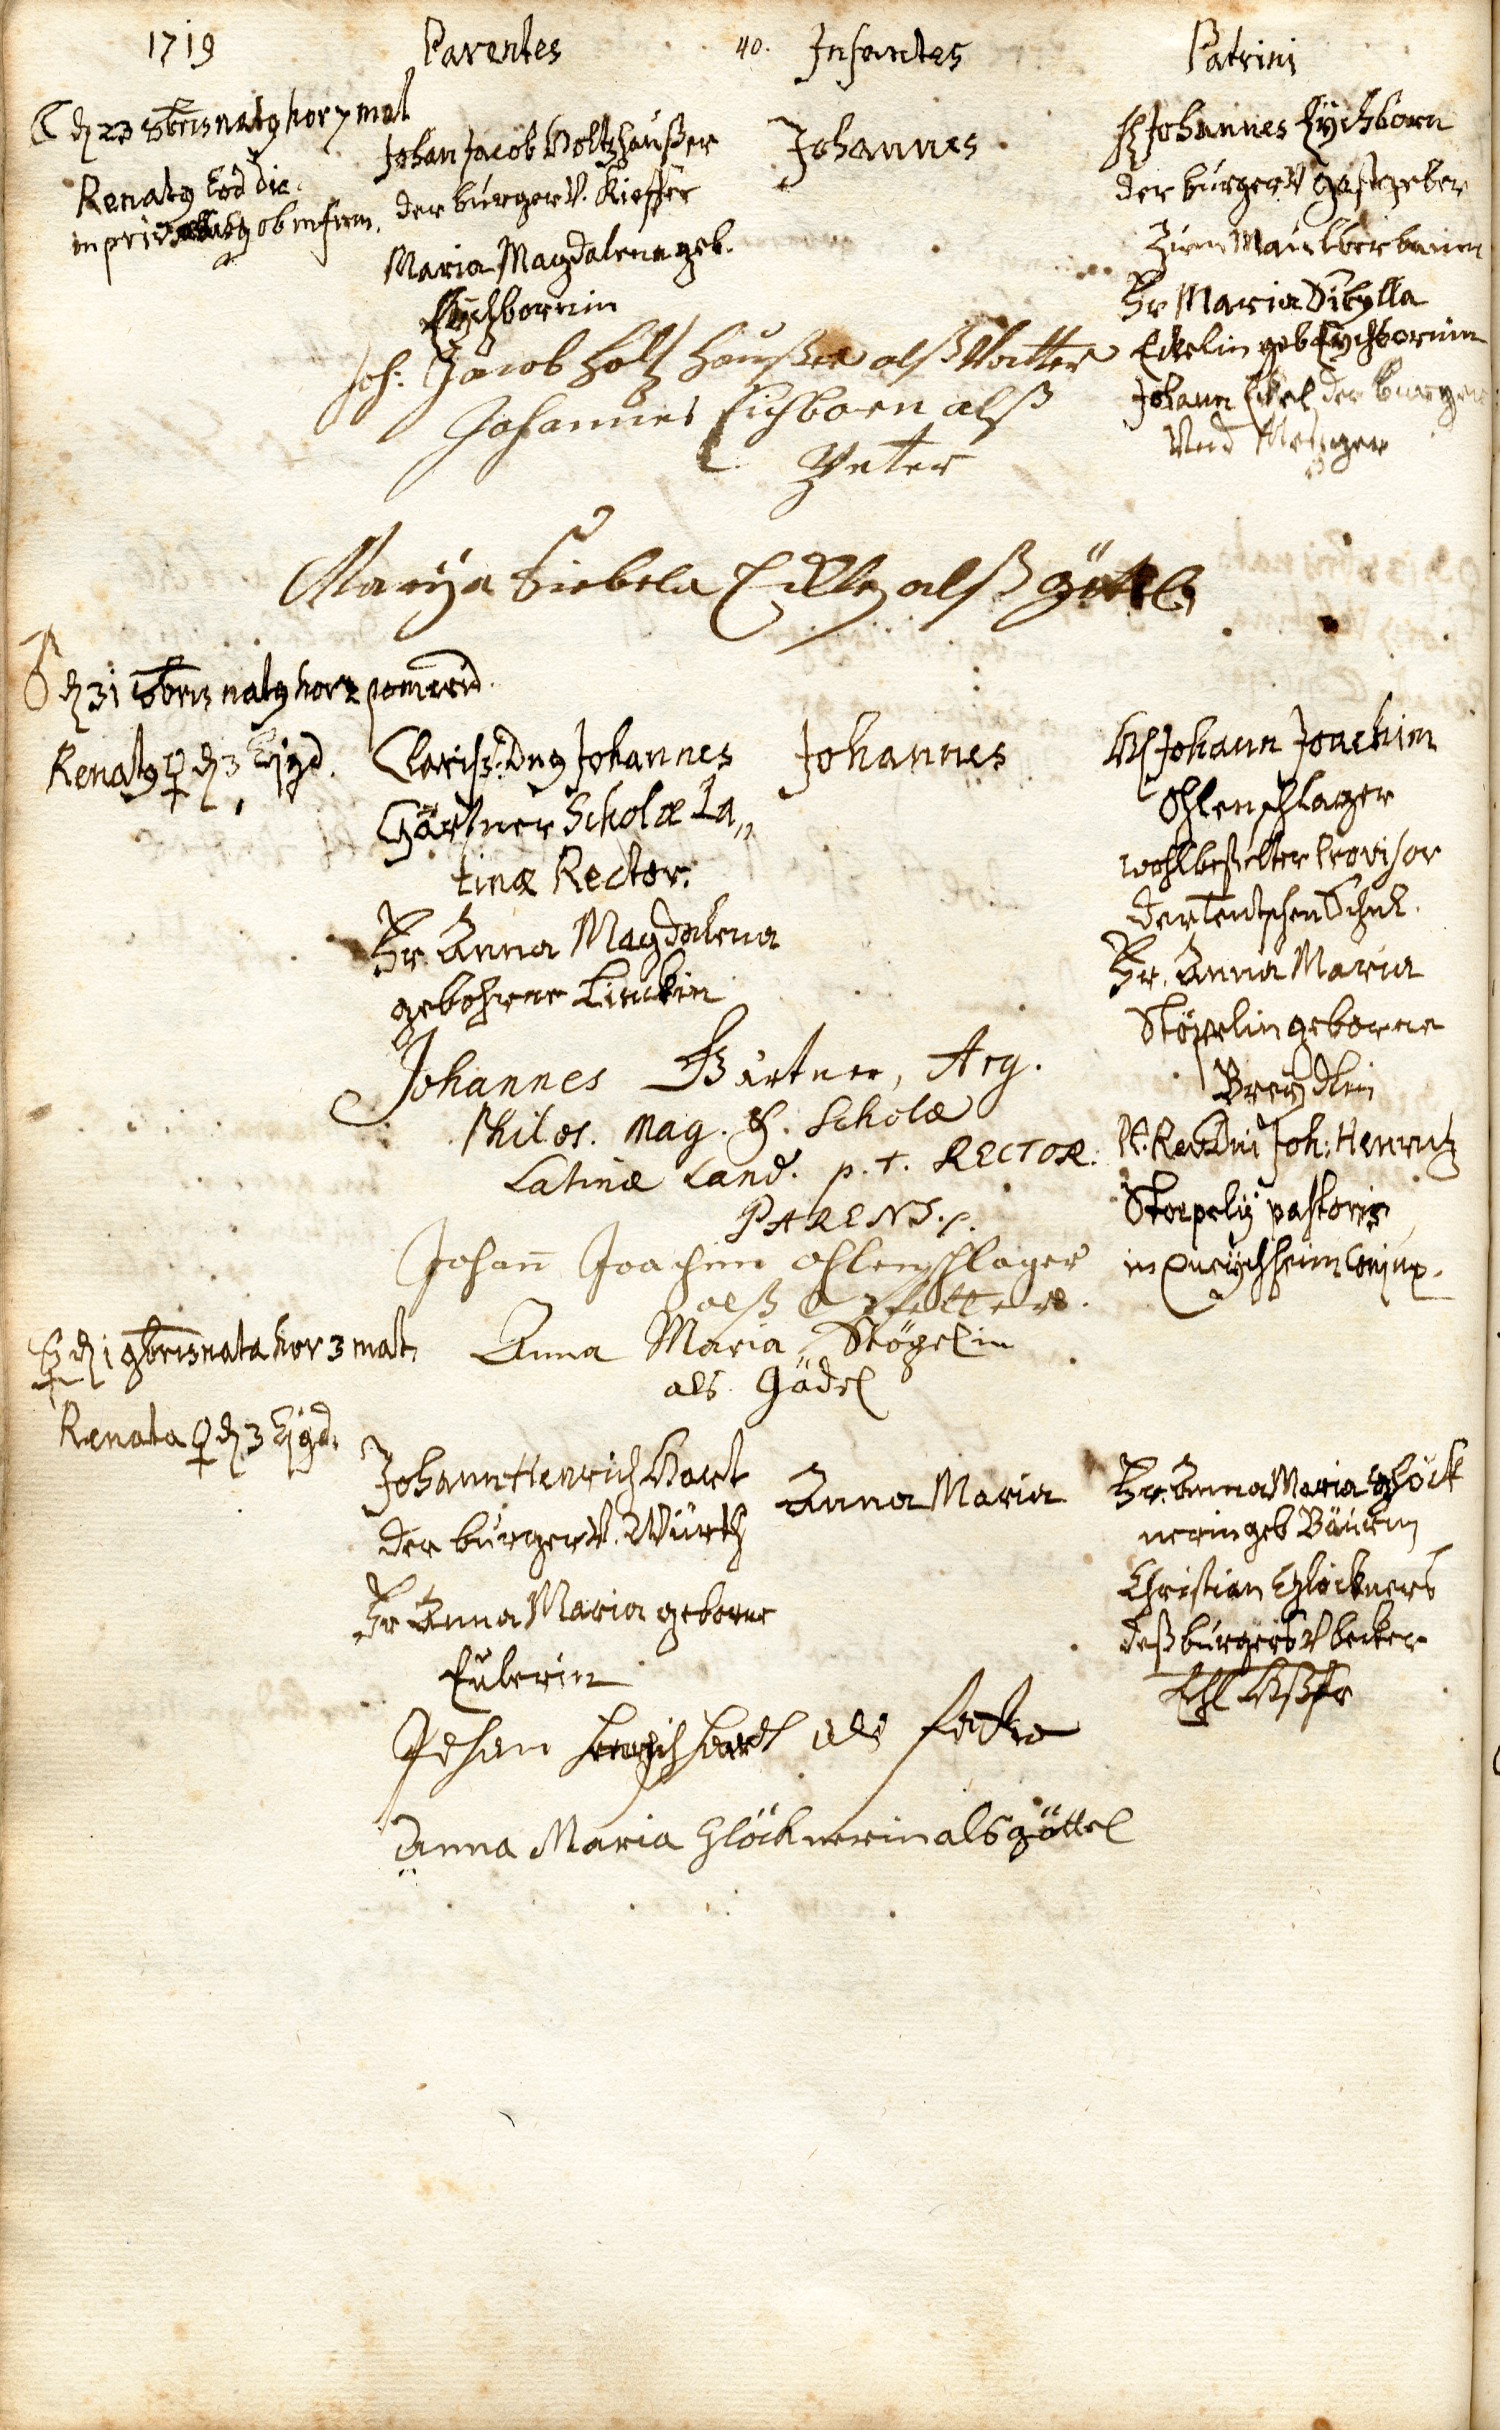 1719
Parentes
40.
Infantes
Patrini
☾ d 23 8bris natg hor 7 mat
Renatg Eod die
in priv ob infirm.
Johan Jacob Holtzhaußer
der burger V. Kieffer
Maria Magdalena geb.
Eychbornin
Johannes
H Johannes Eychborn
der burger V Gastgeber
Zum Maulberbaum
Fr Maria Sibylla
Eckelin geb Eychbornin
Johann Eckel der burger
Und Metzger
Joh: Jacob Holtz Haußer alß Vatter
Johannes Eichborn alß
Pfetter
Marÿa Siebela Eckle alß göttel
♂ d 31 8bris natg hor 2 pomerid.
Renatg ♀ d 3 Ejgd.
Clariss: Dng Johannes
Gärtner Scholæ La„
tinæ Rector.
Fr. Anna Magdalena
gebohrne Linckin
Johannes
H Johann Joachim
Ohlenschlager
wohlbestelter Provisor
der Teutschen Schul.
Fr. Anna Maria
Stöpelin geborne
Breydlin
Pl. Rev. Dni Joh: Henrici
Stoepelij pastoris
in Queichheim Conjux.
Johannes Gärtner, Arg.
Philos. Mag. & Scholæ
Latinæ Land. p. t. RECTOR.
PARENS.
Johann Joachim Ohlenschlager
alß Pfetter.
Anna Maria Stöpelin
als Gödel
☿ d 1 9bris nata hor 3 mat.
Renata ♀ d 3 Ejgd.
Johann Henrich Hart
der burger V. Würth
Fr Anna Maria geborne
Eulerin
Anna Maria
Fr. Anna Maria Glöck
nerin geb Bäurin
Christian Glöckners
deß burgers V becker
Ehl Haußfr
Johan Henrich Hart als fatter
Anna Maria Glöcknerin als göttel